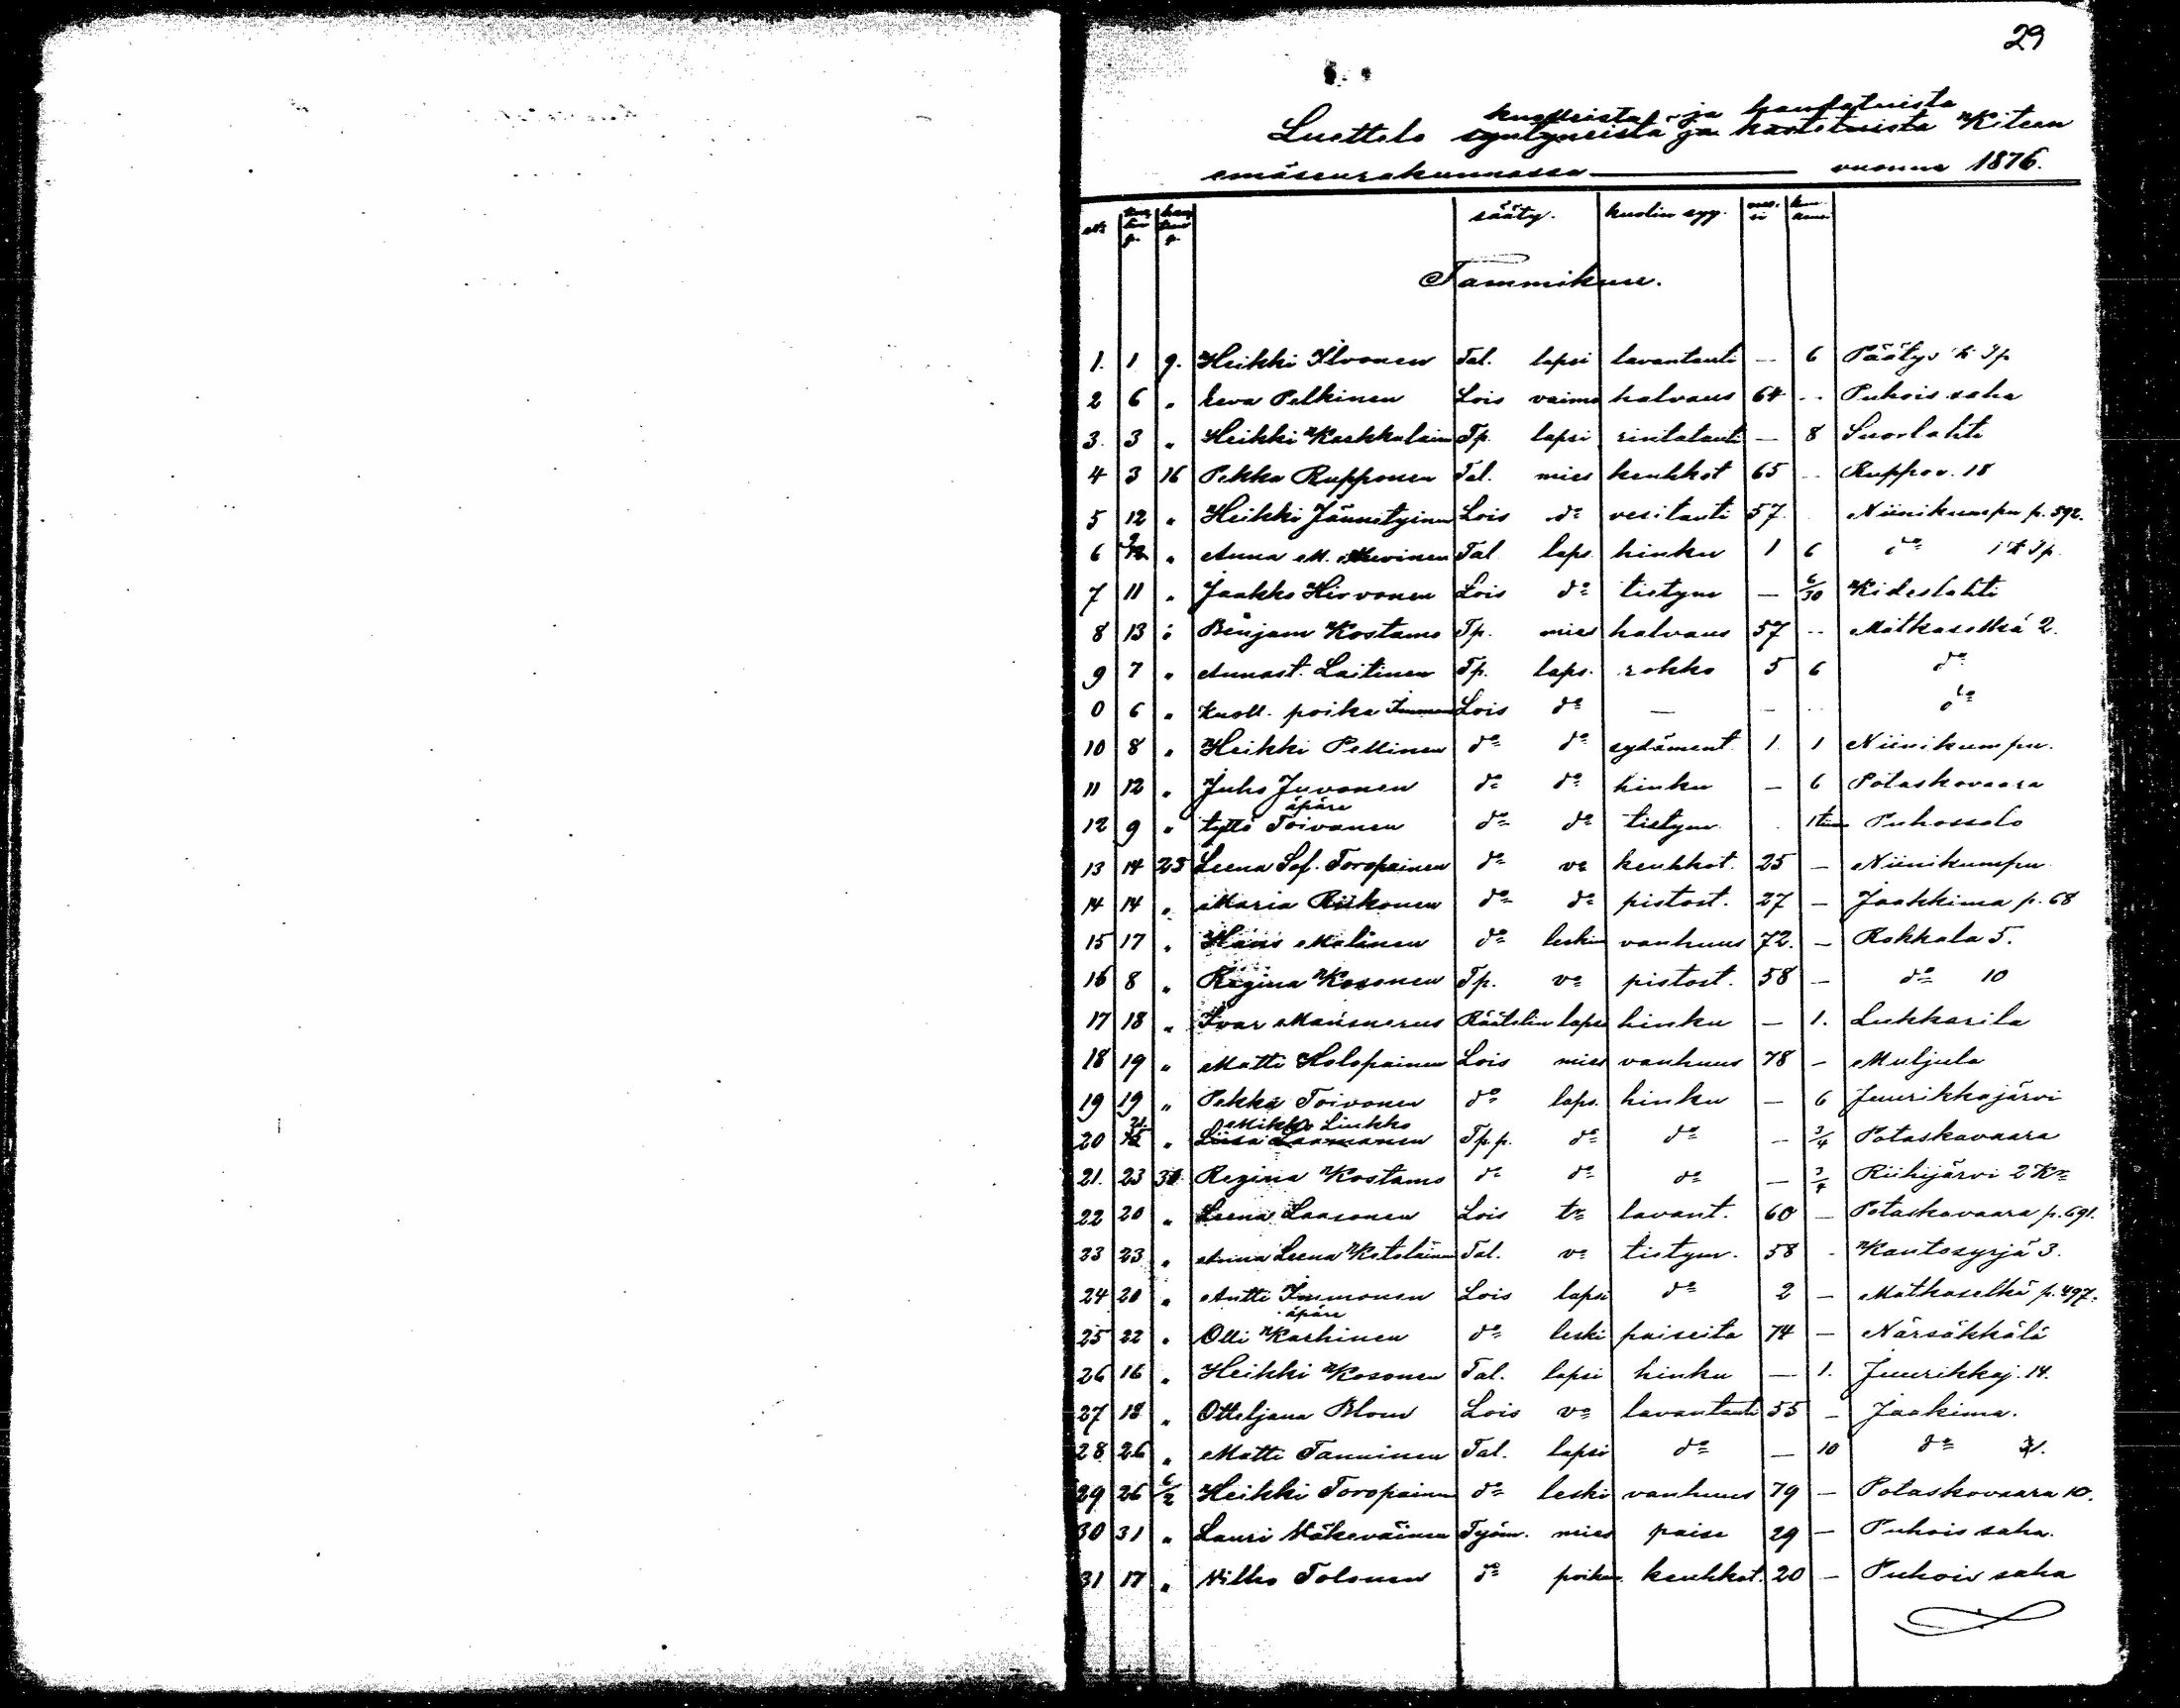 29
kuolleista ja haudatuista
Luettelo syntyneistä ja kastetuista Kiteen
emäseurakunnassa — vuonna 1876.
sääty. kuolin syy.
Tammikuu.
1. 1 9. Heikki Ilvonen Tal. lapsi lavantauti — 6
2 6 " Eeva Pelkinen Lois vaimo halvaus 64 -- Puhois saha
3. 3 " Heikki Karkkulain Tp. lapsi rintatauti — 8 Suorlahti
4 3 16 Pekka Rupponen Tal. mies keuhkot 65 -- Ruppov. 18
5 12 " Heikki Jännetyinen Lois do vesitauti 57. Niinikumpu p. 592.
6 9 " Anna M. Tal. laps. hinku 1 6 do
7 11 " Jaakko Hirvonen Lois do tietym — 6/30 Kideslahti
8 13 " Benjam Kostamo Tp. mies halvaus 57 -- Matkaselkä 2.
9 7 " Annast. Laitinen Tp. laps. rokko 5 6 do
0 6 " Kuoll. poika Immonen Lois do — - -- do
10 8 " Heikki Pellinen do do sydäment. 1. 1 Niinikumpu.
11 12 " Juho Juvonen do do hinku — 6 Potaskavaara
äpäre
12 9 " tyttö Toivanen do do tietym. Puhossalo
13 14 23 Leena Sof. Toropainen do vo keuhkot. 25 — Niinikumpu
14 14 " Maria Riikonen do do pistost. 27 — Jaakkima p. 68
15 17 " Hans Malinen do leskim vanhuus 72. — Rokkala 5.
16 8 " Regina Kosonen Tp. vo pistost. 58 — do 10
17 18 " Ivar Mansnerus Räätälin lapsi hinku — 1. Lukkarila
18 19 " Matti Holopainen Lois mies vanhuus 78 - Muljula
19 19 " Pekka Toivonen do laps. hinku — 6 Juurikkajärvi
21. Mikko Liukko
20 " Liisa Laamanen Tp.p. do do — 3/4 Potaskavaara
21. 23 30 Regina Kostamo do do do — 3/4 Riihijärvi 2
22 20 " Leena Laasonen Lois to lavant. 60 — Potaskavaara p. 691.
23 23 " Anna Leena Ketolainen Tal. vo tietym. 58 - Kantosyrjä 3.
24 20 " Antti Immonen Lois lapsi do 2 — Matkaselkä p. 497.
äpäre
25 22 " Olli Karhinen do leski paiseita 74 — Närsäkkälä
26 16 " Heikki Kosonen Tal. lapsi hinku — 1. Juurikkaj. 14.
27 18 " Otteljana Blom Lois vo lavantauti 55 — Jaakima.
28 26 " Matti Tanninen Tal. lapsi do — 10 do
29 26 6/2 Heikki Toropainen do leski vanhuus 79 — Potaskavaara 10.
30 31 " Lauri Väkeväinen Työm. mies paise 29 — Puhois saha.
31 17 " Vilho Tolonen do poika keuhkot. 20 — Puhois saha